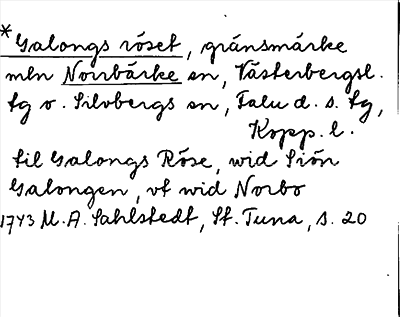 *Galongs röset, gränsmärke
mln Norrbärke sn, Västerbergsl.
tg o. Silvbergs sn, Falu d. s. tg,
Kopp. l.
til Galongs Röse, wid Siön
Galongen, vt wid Norbo
1743 M. A. Sahlstedt, St. Tuna, s. 20